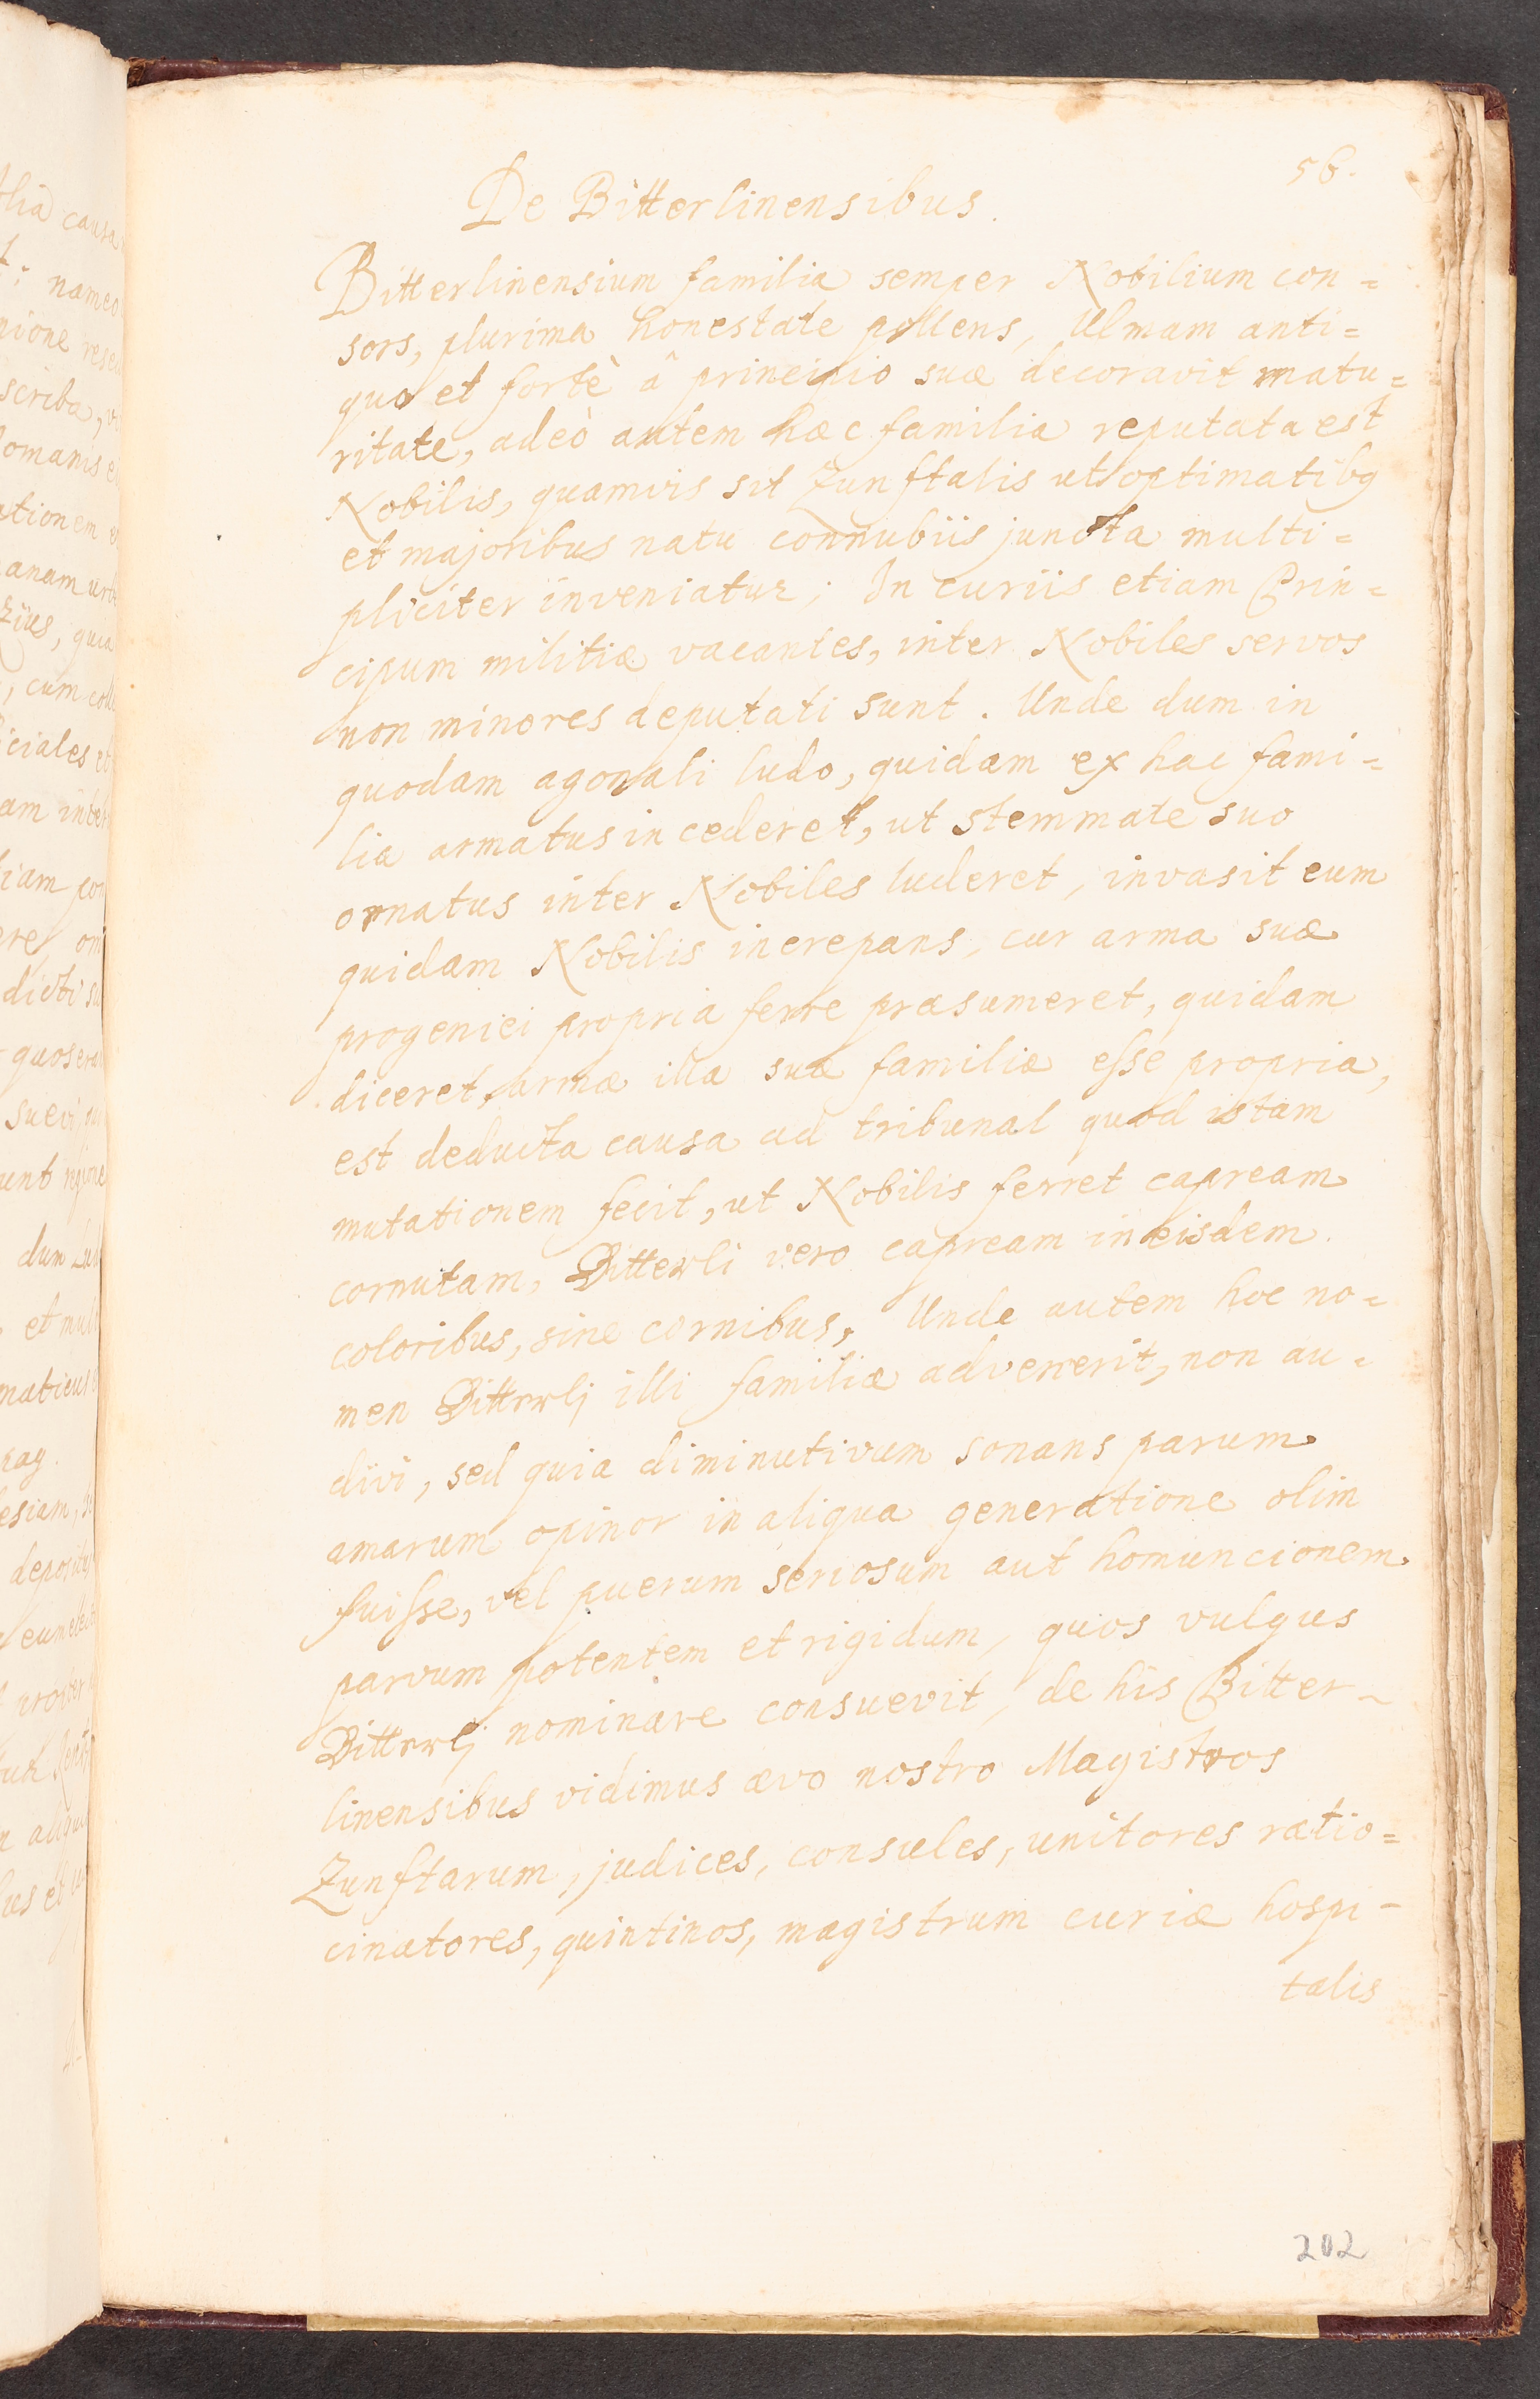 56.
De Bitterlinensibus.
Bitterlinensium familia semper Nobilium con=
sors, plurima honestate pollens, Ulmam anti=
qua et fortè â principio suæ decoravit matu=
ritate, adeò autem hæc familia reputata est
Nobilis, quamvis sit Zunftalis ut optimatibg
et majoribus natu connubiis juncta multi=
pliciter inveniatur; In curiis etiam Prin=
cipum militiæ vacantes, inter Nobiles servos
non minores deputati sunt. Unde dum in
quodam agonali ludo, quidam ex hac fami=
lia armatus incederet, ut stemmate suo
ornatus inter Nobiles luderet, invasit eum
quidam Nobilis increpans, cur arma suæ
progeniei propria ferre præsumeret, quidam
diceret, arma illa suæ familiæ esse propria,
est deducta causa ad tribunal quod istam
mutationem fecit, ut Nobilis ferret capream
cornutam, Bitterli vero capream in eisdem
coloribus, sine cornibus, Unde autem hoc no=
men Bitterlj illi familiæ advenerit, non au=
divi, sed quia diminutivum sonans parum
amarum opinor in aliqua generatione olim
fuisse, vel puerum seriosum aut homuncionem
parvum potentem et rigidum, quos vulgus
Bitterlj nominare consuevit, de his Bitter=
linensibus vidimus ævo nostro Magistros
Zunftarum, judices, consules, unitores ratio=
cinatores, quintinos, magistrum curiæ hospi=
talis
202
tlia causa
nameo
nione rese
scriba, v
omanis e
ationem e
anam urb
zius, quia
, cum coll
iciales et
am inter
iam po
ere, om
dicti su
quos era
suevi
unt regione
dum Lu
et mult
maticus
pag.
esiam, s